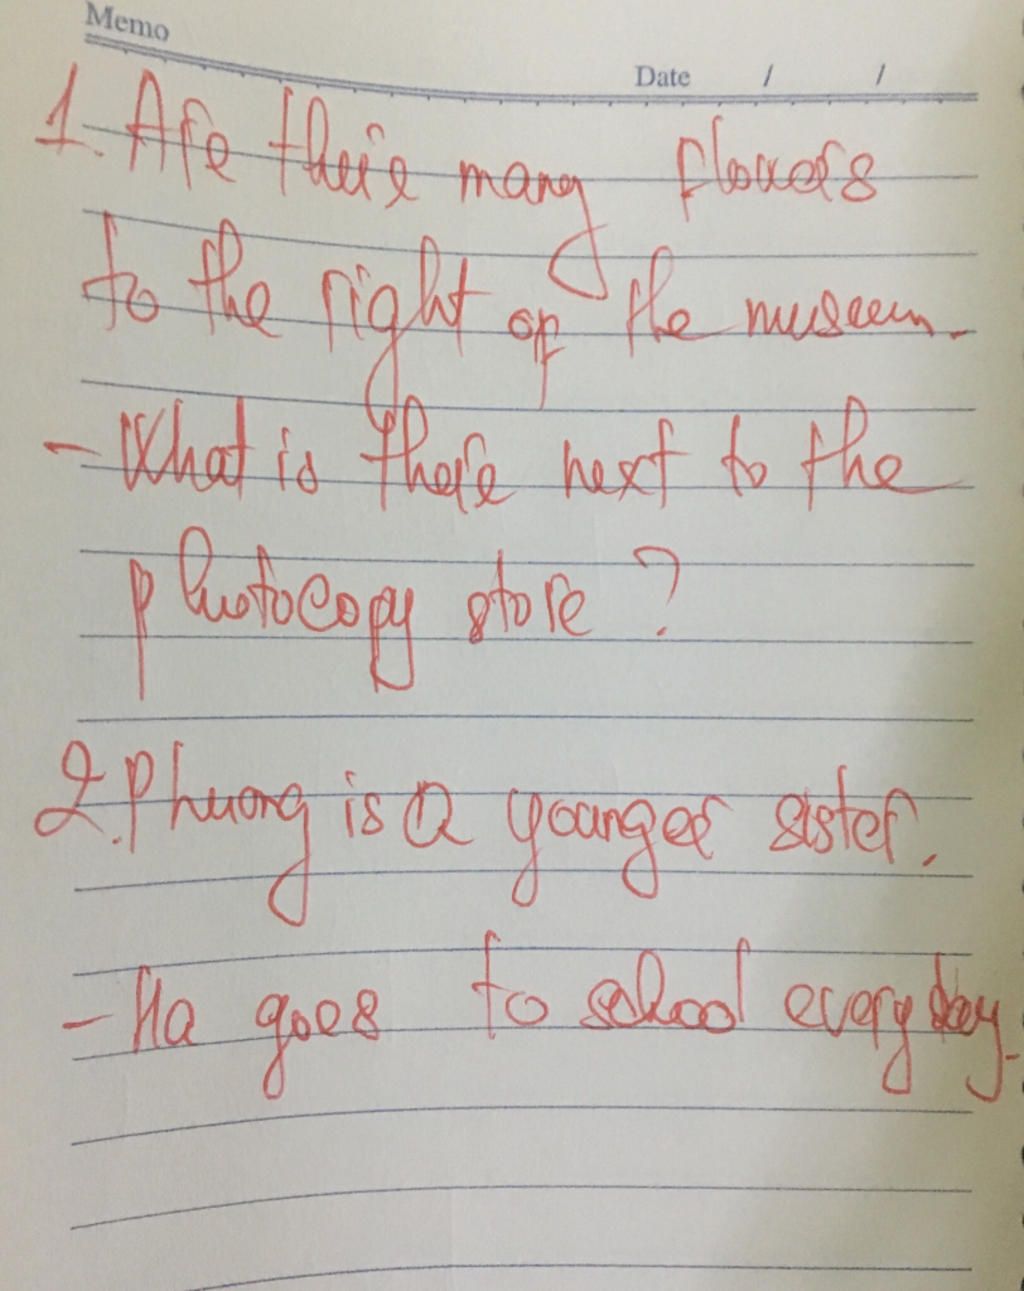 Memo
Date / /
1. Are there many flowers
to the right of the museum.
- What is there next to the
photocopy store ?
2. Phuong is a younger sister.
- Ha goes to school every day.